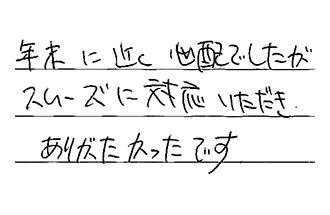 年末に近く心配でしたが
スムーズに対応いただき.
ありがたかったです